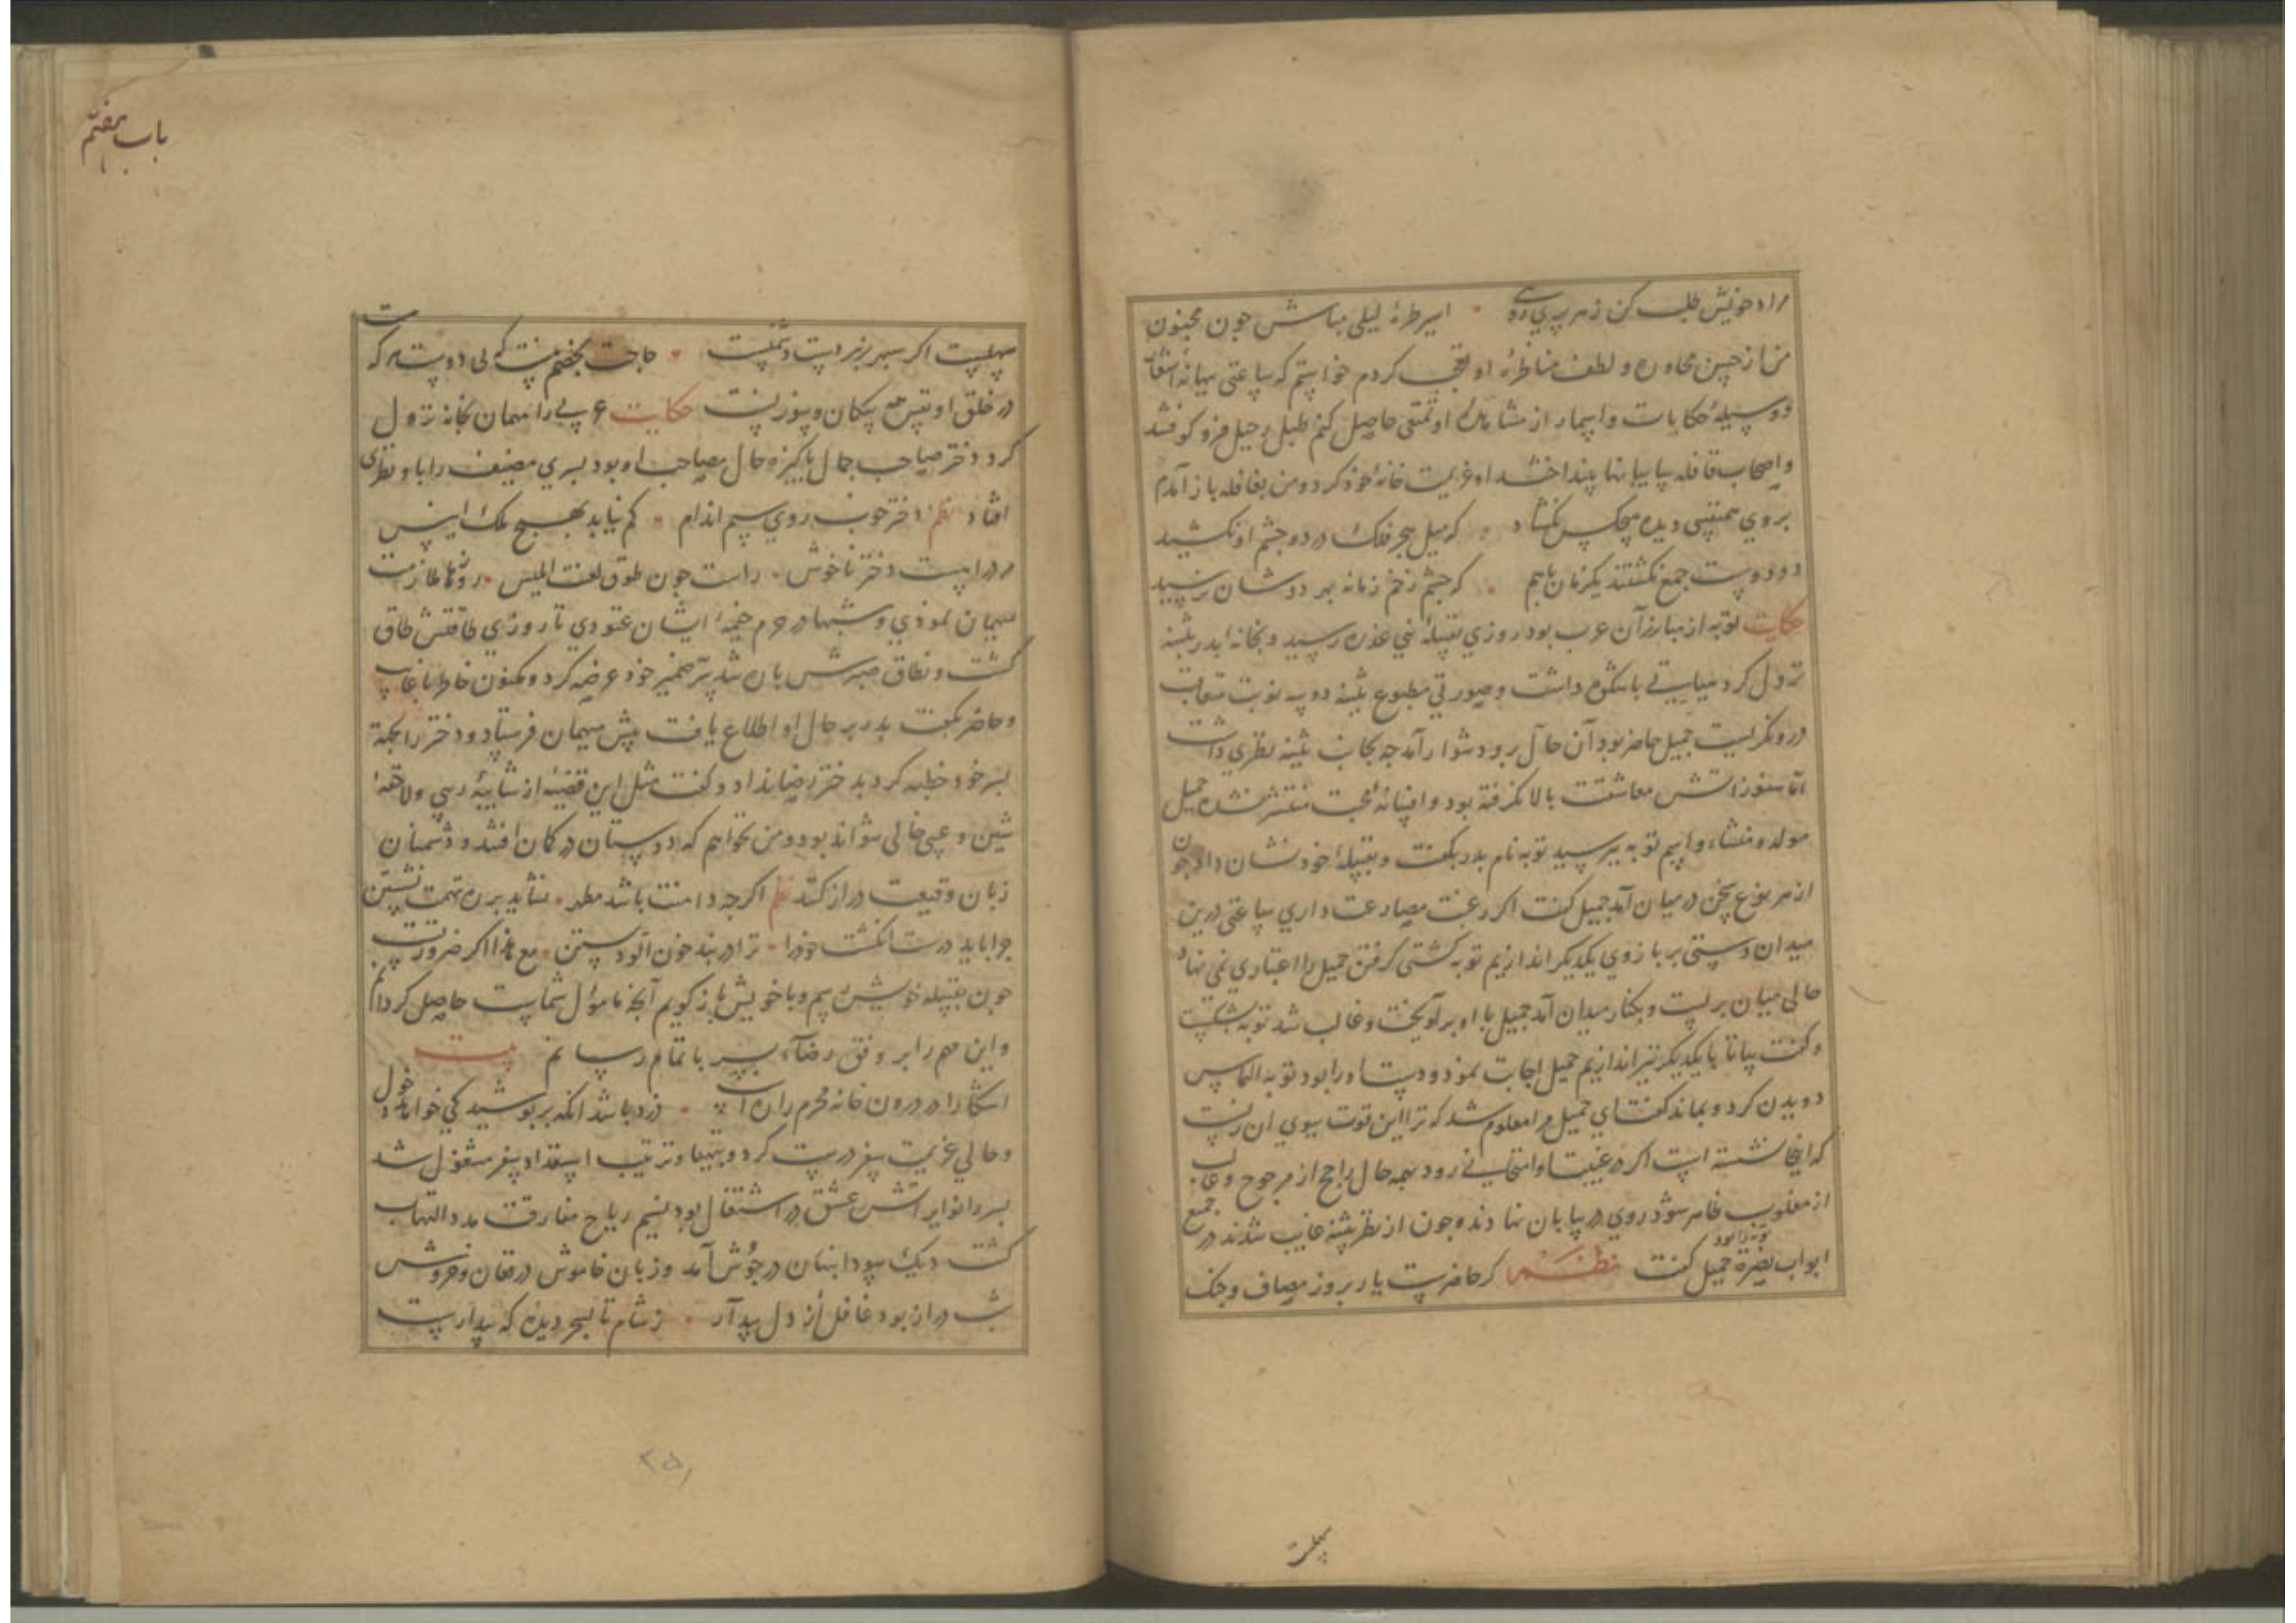 مراد خویش طلب کن ز هر پری رویی اسیر طرهٔ لیلی مباش چون مجنون
من از حسن محاوره و لطف مناظرهٔ او تعجب کردم خواستم که ساعتی ببهانهٔ
و وسیلهٔ حکایات و اسمار از مشاهدهٔ او تمتعی حاصل کنم طبل رحیل فرو کوفتند
و اصحاب قافله بیابانها پنداختند او عزیمت خانهٔ خود کرد و من بقافله باز آمدم
بروی همنشینی دیده هیچکس نگشاد که میل هجر فلک در دو چشم او نکشید
دو دوست جمع نگشتند یکزمان باهم که چشم زخم زمانه بهر دوشان نرسید
حکایت توبه از مبارزان عرب بود روزی بقبیلهٔ بنی عذره رسید و بخانهٔ پدر بثینه
نزول کرد سیاستی باشکوه داشت و صورتی مطبوع بثینه دو سه نوبت متعاقب
درو نگریست جمیل حاضر بود آن حال برو دشوار آمد چه بجانب بثینه نظری داشت
اما هنوز آتش معاشقت بالا نگرفته بود و افسانهٔ محبت منتشر نشده جمیل
مولد و منشاء و اسم توبه بپرسید توبه نام پدر بگفت و بقبیلهٔ خود نشان داد چون
از هر نوع سخن در میان آمد جمیل گفت اگر رغبت مصارعت داری ساعتی درین
میدان دستی بر بازوی یکدیگر اندازیم توبه کشتی گرفتن جمیل را اعتباری نمی نهاد
حالی میان بربست و بکنار میدان آمد جمیل با او برآویخت و غالب شد توبه بشکست
و گفت بیا تا با یکدیگر تیر اندازیم جمیل اجابت نمود و دست او را بود توبه التماس
دویدن کرد و بماند گفت ای جمیل مرا معلوم شد که ترا این قوت بسوی آن زنست
که اینجا نشسته است اگر در غیبت او امتحانی رود همه حال راجح از مرجوح و غالب
از مغلوب ظاهر شود روی در بیابان نهادند و چون از نظر بثینه غایب شدند در جمیع
توبه را بود
ابواب نصرة جمیل گفت نظم گر حاضرست یار بروز مصاف و جنگ
سهلست
باب هفتم
سهلست اگر سپهر زبردست دشمنست حاجت بخصم نیست کسی دوست که
در خلق او نفس همه پیکان و سوزنست حکایت عربی را مهمان بخانه نزول
کرد دختر صاحب جمال پاکیزه حال مصاحب او بود پسری مضیف را با او نظری
افتاد نظم دختر خوب روی سیم اندام کم نیاید بهیچ ملک
مادر اوست دختر ناخوش راست چون طوق لعنت ابلیس روزها ملازمت
میهمان نمودی و شبها در حرم خیمهٔ ایشان غنودی تا روزی طاقتش طاق
گشت و نطاق صبرش پاره شد سر ضمیر خود عرضه کرد و مکنون خاطر با غایب
و حاضر بگفت پدر بر حال او اطلاع یافت پیش میهمان فرستاد و دختر را بجهة
پسر خود خطبه کرد پدر دختر رضا نداد و گفت مثل این قضیه از شایبهٔ ریبی و لاحقهٔ
شین و عیبی خالی نتواند بود و من نخواهم که دوستان در گمان افتند و دشمنان
زبان وقیعت دراز کنند نظم اگرچه دامنت باشد مطهر نشاید بر ره تهمت نشستن
چرا باید درست انگشت خود را ترا در بند خون آلود بستن مع هذا اگر ضرورتست
چون بقبیله خویش رسم و با خویش باز گویم آنچه مامول شماست حاصل گردانم
و این مهم را بر وفق رضاء پسر باتمام رسانم بیت
آشکارا در درون خانه محرم را ره است دزد باشد آنکه بر پوشید کی خواهد دخول
و حالی عزیمت سفر درست کرد و بتهیه و ترتیب استعداد سفر مشغول شد
پسر را نوایر آتش عشق در اشتعال بود بنسیم ریاح مفارقت مدد التهاب
گشت دیگ سودا پنهان در جوش آمد و زبان خاموش در فغان و خروش
شب دراز بود غافل از دل بیدار ز شام تا بسحر دیده که بیدارست
۲۵۱